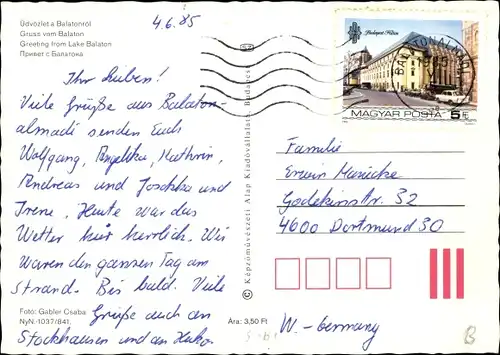 Üdvözlet a Balatonról
Gruss vom Balaton
Greeting from Lake Balaton
Привет с Балатона
4.6.85
Ihr Lieben!
Viele Grüße aus Balaton-
almadi senden Euch
Wolfgang, Angelika, Kathrin,
Andreas und Joschka und
Irene. Heute war das
Wetter hier herrlich. Wir
waren den ganzen Tag am
Strand. Bis bald. Viele
Grüße auch an
Stockhausen und an Heiko.
Foto: Gabler Csaba
NyN.-1037/841.
Ára: 3,50 Ft
© Képzőművészeti Alap Kiadóvállalata, Budapest
Budapest Hilton
MAGYAR POSTA 5 Ft
Familie
Erwin Hanicke
Godekinstr. 32
4600 Dortmund 30
W.-Germany
B